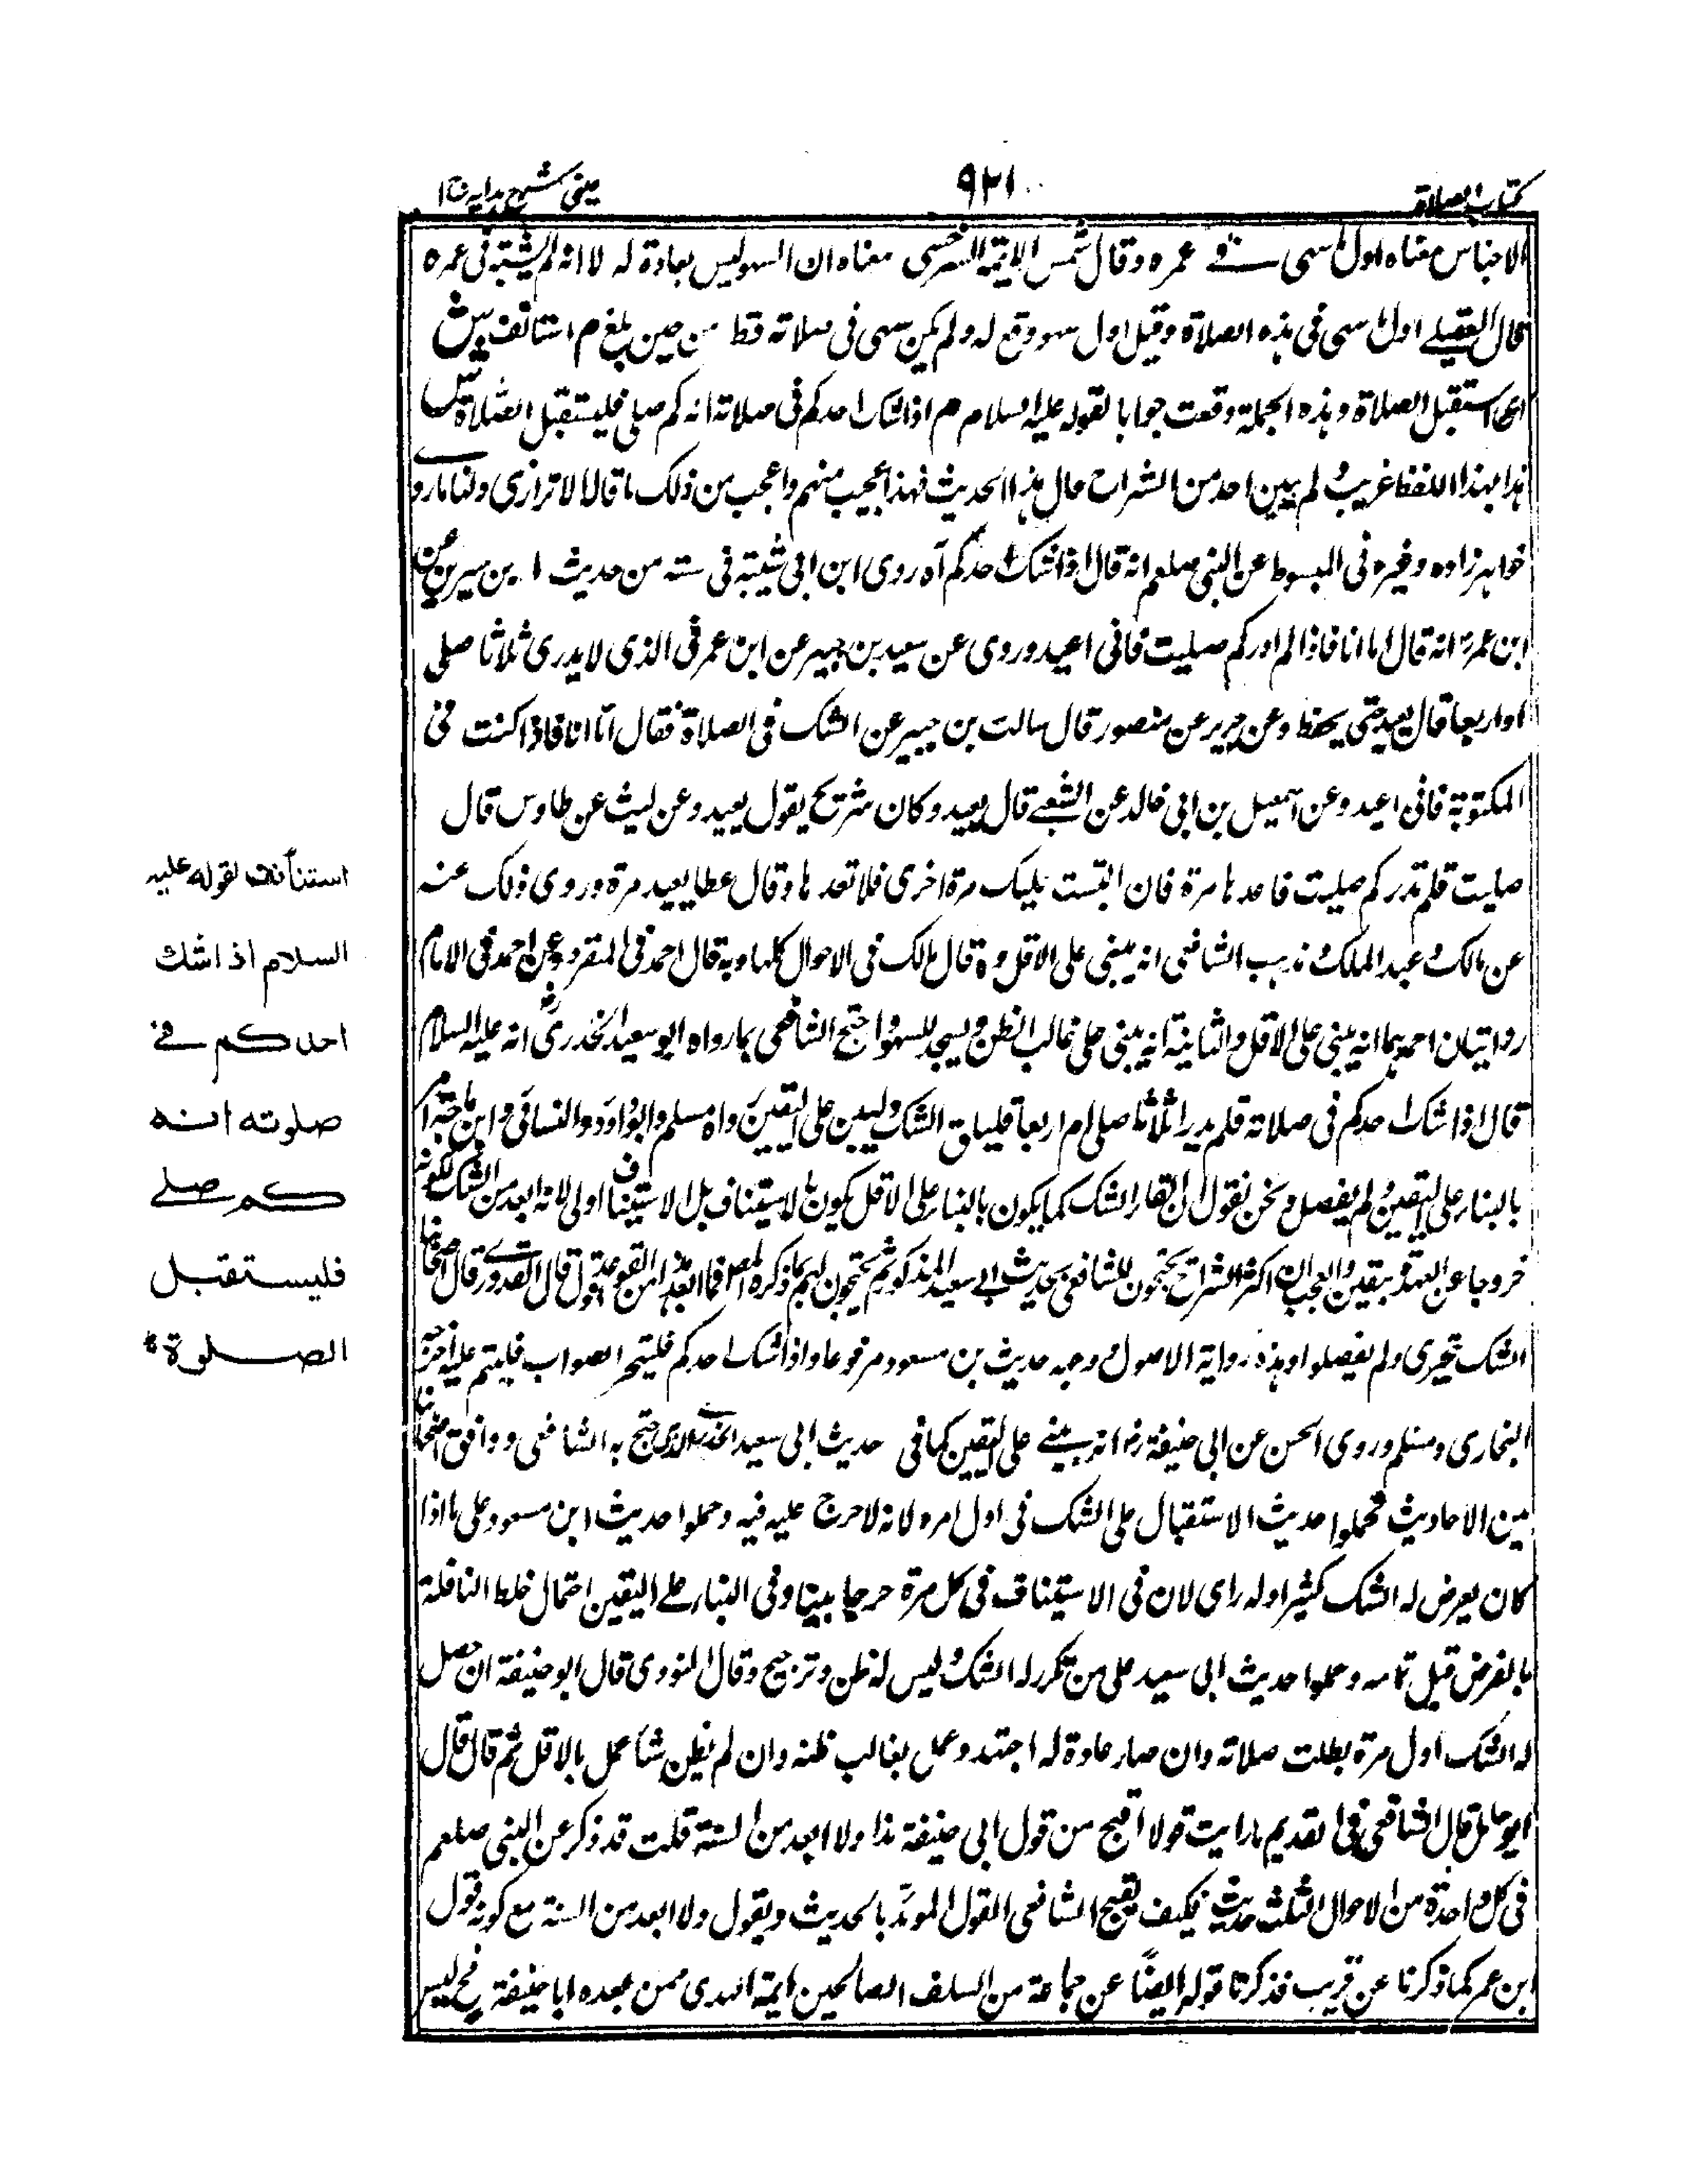 كتاب الصلاة
٩٢١
عينى شرح هدايه ج ١
الاجناس معناه اول ما سهى فى عمره وقال شمس الايمة السرخسى معناه ان السهو ليس بعادة له لا انه لم يشتبه فى عمره
قال العقيلے اول ما سهى فى هذه الصلاة وقيل اول سهو وقع له ولم يكن سهى فى صلاته قط من حين بلغ م استانف ش
اى استقبل الصلاة وهذه الجملة وقعت جوابا لقوله عليه السلام م اذا شك احدكم فى صلاته انه كم صلى فليستقبل الصلاة ش
هذا بهذا اللفظ غريب ولم يبين احد من الشراح حال هذا الحديث فهذا عجيب منهم واعجب من ذلك ما قال الاترازى ولنا ما رو
خواهر زاده وغيره فى المبسوط عن النبى صلعم انه قال اذا شك احدكم آه روى ابن ابى شيبة فى سته من حديث ابن سيرين عن
ابن عمر انه قال اما انا فاذا لم ادر كم صليت فانى اعيد وروى عن سعيد بن جبير عن ابن عمر فى الذى لا يدرى ثلاثا صلى
او اربعا قال يعيد حتى يحفظ وعن جرير عن منصور قال سالت بن جبير عن الشك فى الصلاة فقال اما انا فاذا كنت فى
المكتوبة فانى اعيد وعن اسمعيل بن ابى خالد عن الشعبے قال يعيد وكان شريح يقول يعيد وعن ليث عن طاوس قال
صليت فلم تدر كم صليت فاعدها مرة فان التبست عليك مرة اخرى فلا تعدها وقال عطا يعيد مرة وروى ذلك عنه
عن مالك وعبد الملك ومذهب الشافعى انه يبنى على الاقل وة قال مالك فى الاحوال كلها وبه قال احمد فى المنفرد وعن احمد فى الامام
روايتان احدهما انه يبنى على الاقل والثانية انه يبنى على غالب الظن ويسجد للسهو واحتج الشافعى بما رواه ابو سعيد الخدرى رض انه عليه السلام
قال اذا شك احدكم فى صلاته فلم يدر اثلاثا صلى ام اربعا فليلق الشك وليبن على اليقين رواه مسلم وابو داود والنسائى وابن ماجة امر
بالبناء على اليقين ولم يفصل ونحن نقول ان القاء الشك كما يكون بالبناء على الاقل يكون بالاستيناف بل الاستيناف اولى لانه ابعد من الشك لكونه
خروجا عن العهدة بيقين والعجب ان اكثر الشراح يحتجون للشافعى بحديث ابے سعيد المذكور ثم يحتجون لهم بما ذكره المص فما ابعد هذا من القواعد قال القدورے وقال اصحابنا
الشك تحرى ولم يفصلوا وهذه رواية الاصول وجه حديث بن مسعود مرفوعا واذا شك احدكم فليتحر الصواب فليتم عليه اخرجه
البخارى ومسلم وروى الحسن عن ابى حنيفة رم انه يبنے على اليقين كما فى حديث ابى سعيد الخدرے الذى احتج به الشافعى ووافق اصحابنا
بين الاحاديث فحملوا حديث الاستقبال على الشك فى اول امره لانه لا حرج عليه فيه وحملوا حديث ابن مسعود على ما اذا
كان يعرض له الشك كثيرا وله راى لان فى الاستيناف فى كل مرة حرجا بينا وفى البناء على اليقين احتمال خلط النافلة
بالفرض قبل تمامه وحملوا حديث ابى سعيد على من تكرر له الشك وليس له ظن وترجيح وقال النووى قال ابو حنيفة ان حصل
له الشك اول مرة بطلت صلاته وان صار عادة له اجتهد وعمل بغالب ظنه وان لم يظن شيا عمل بالاقل ثم قال قال
ابو حامد قال الشافعى فى القديم ما رايت قولا اقبح من قول ابى حنيفة هذا ولا ابعد من السنة قلت قد ذكر عن النبى صلعم
فى كل واحدة من الاحوال الثلث حديث فكيف يقبح الشافعى القول المويد بالحديث ويقول ولا ابعد من السنة مع كونه قول
ابن عمر كما ذكرنا عن قريب فذكرنا قوله ايضًا عن جماعة من السلف الصالحين ايمة الهدى ممن بعده ابا حنيفة فح ليس
استنأنف لقوله عليه
السلام اذا شك
احدكم فے
صلوته انه
كم صلے
فليستقبل
الصلوة